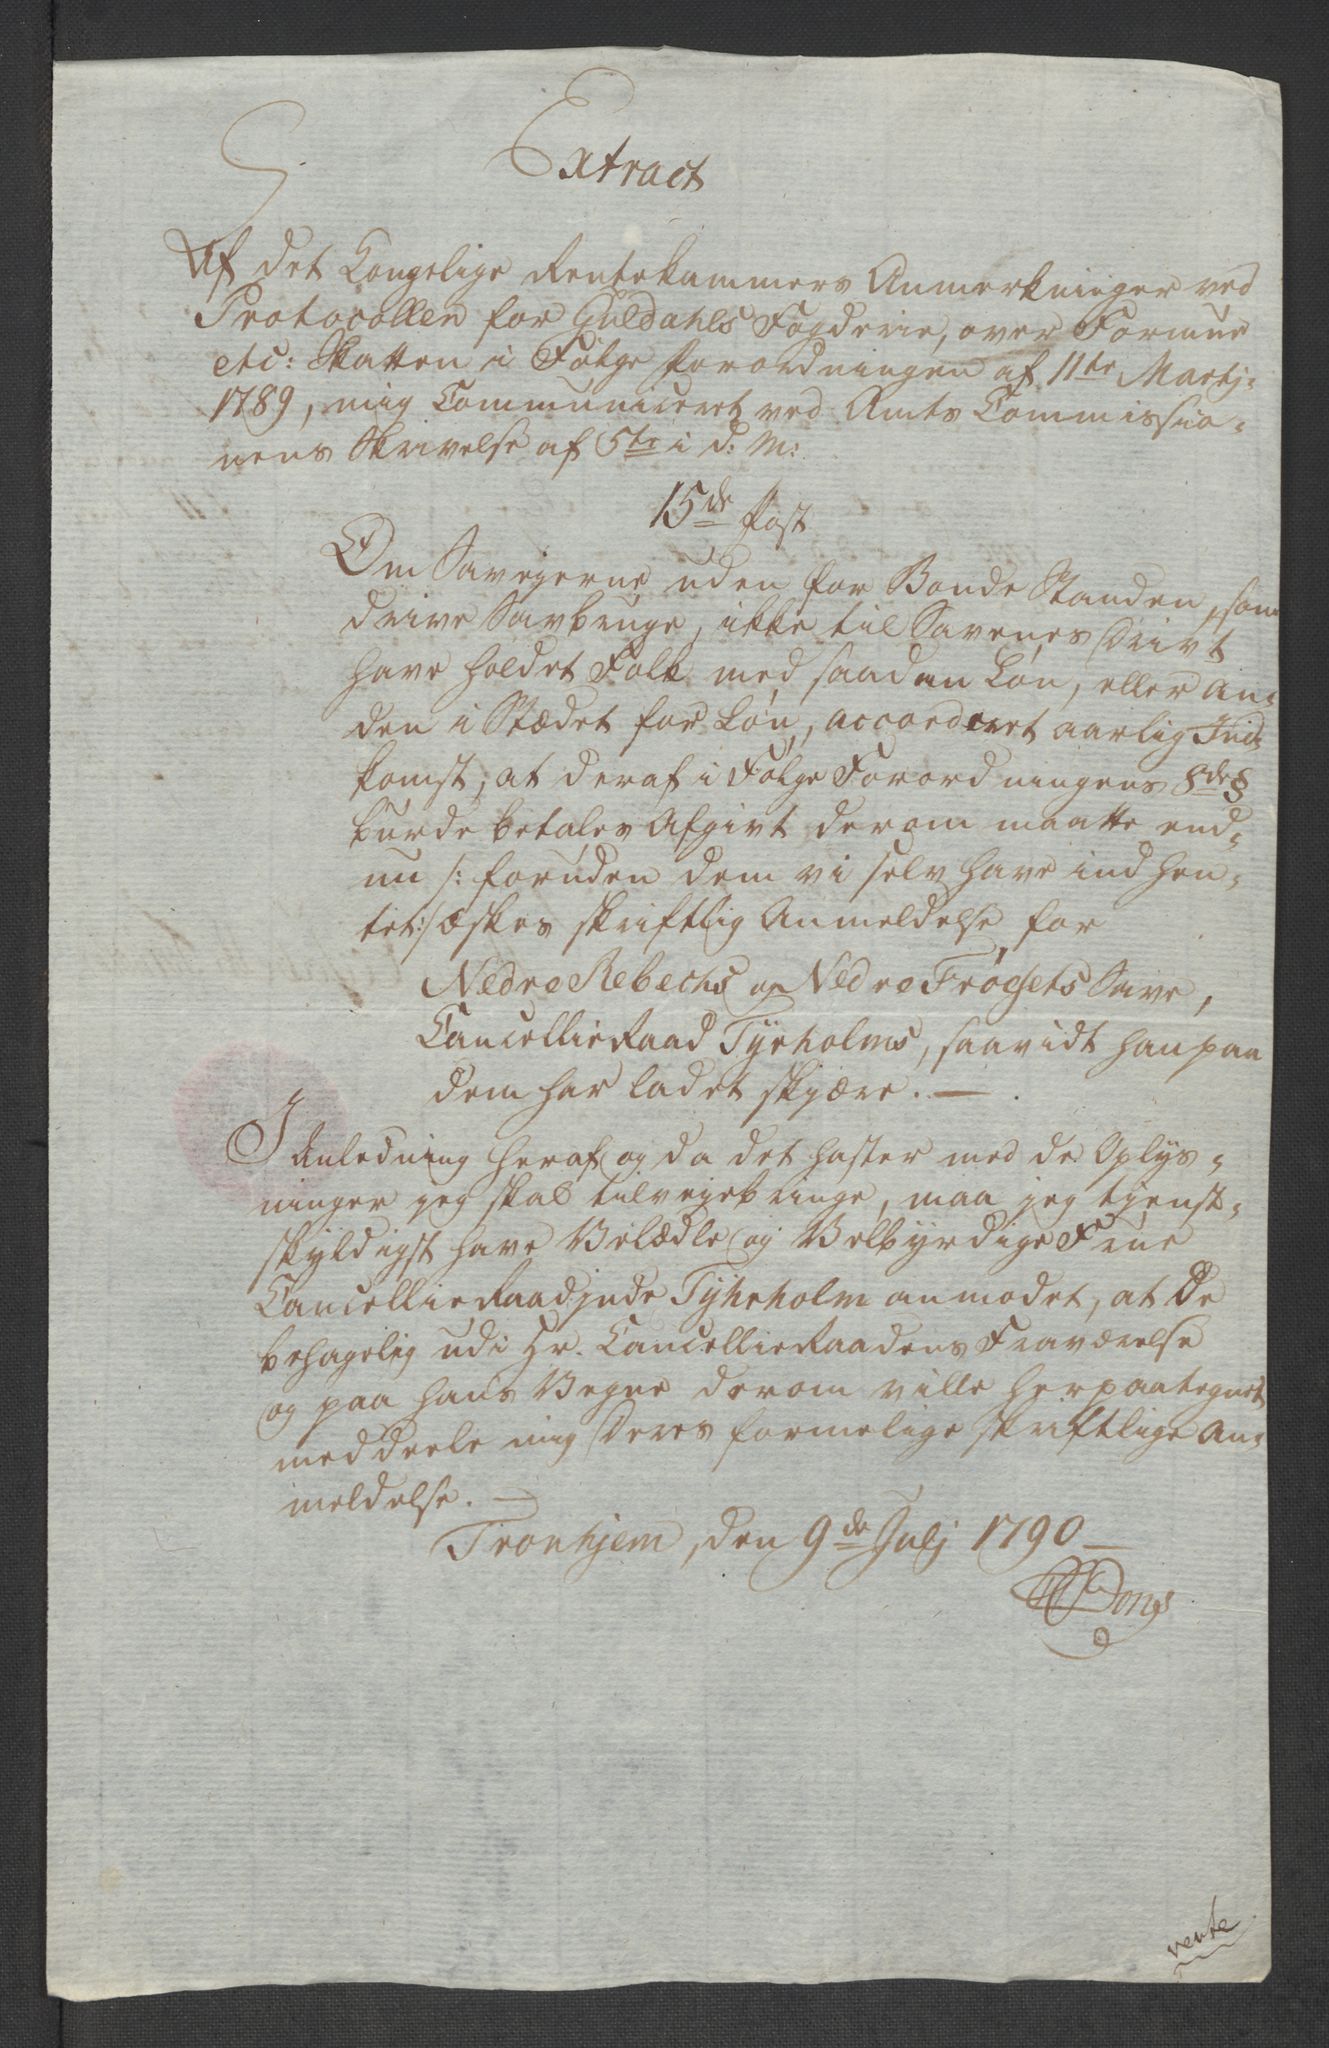 Extract
Af det Kongelige Rentekammers Anmerkninger ved
Protocollen for Guldahls Fogderie, over Formue
etc: Skatten i Følge forordningen af 11te Martj:
1789, mig Communiceret ved Amts Commissio-
nens Skrivelse af 5te i d: M:
15de Post
Om Saugejerne uden for Bonde Standen, som
drive Savbruge, ikke til Savenes Drivt
have holdet Folk med saadan Løn, eller an-
den i Stædet for Løn, accorderet aarlig Ind-
komst, at deraf i Følge Forordningens 8de §
burde betales Afgivt derom maatte end-
nu /: foruden dem vi selv have indhen-
tet :/ æskes skriftlig Anmeldelse for
Nedre Rebechs og Nedre Frøsets Save,
Cancellie Raad Tyrholms, saavidt han paa
dem har ladet skjære. —
I Anledning heraf og da det haster med de Oplys-
ninger jeg skal tilvejebringe, maa jeg tjenst-
skyldigst have Velædle og Velbyrdige Frue
Cancellie Raadjnde Tyhrholm anmodet, at De
behagelig udi Hr. Cancellie Raadens Fraværelse
og paa hans Vegne derom ville herpaategnet
meddeele mig Deres formelige skriftlige An-
meldelse. —
Tronhjem, den 9de Julj 1790 —
Dons
vente